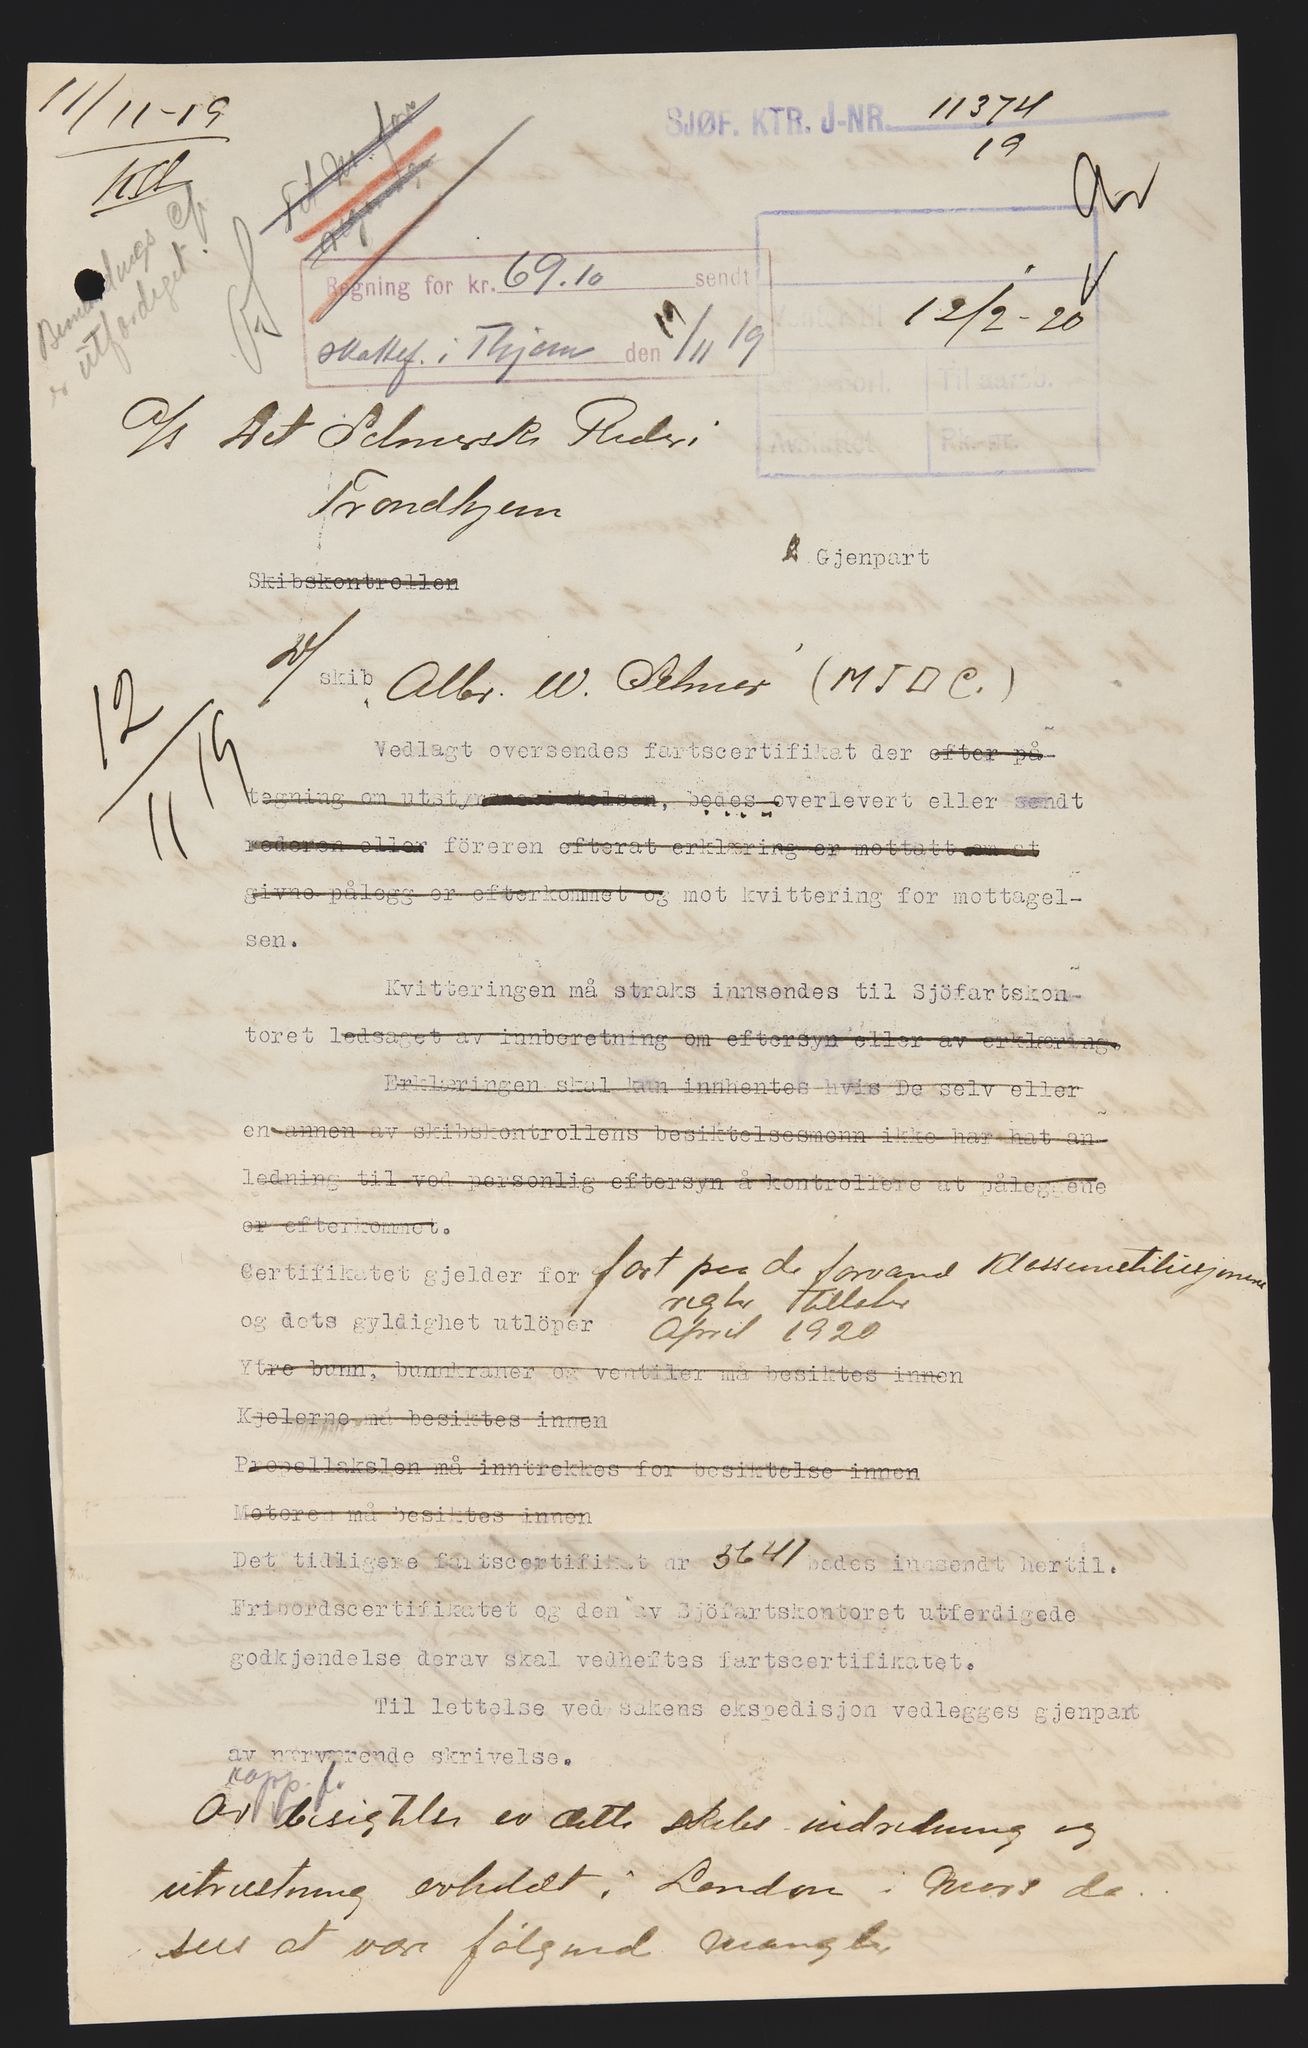 11/11-19
SJØF. KTR. J-NR. 11374
19
Bemandings
er utfærdiget.
Regning for kr. 69.10 sendt
skattef. i Thjem den 11/11 19
12/2-20
Forl. Til aarsb.
A/S Det Selmerske Rederi
Trondhjem
2 Gjenpart
Skibskontrollen
D/ skib Albr. W. Selmer (MJDC.)
12/11 19
Vedlagt oversendes fartscertifikat der efter på-
tegning om utstyrsbesiktelsen, bedes overlevert eller sendt
rederen eller föreren efterat erklæring er mottatt om at
givne pålegg er efterkommet og mot kvittering for mottagel-
sen.
Kvitteringen må straks innsendes til Sjöfartskon-
toret ledsaget av innberetning om eftersyn eller av erklæring.
Erklæringen skal kun innhentes hvis De selv eller
en annen av skibskontrollens besiktelsesmenn ikke har hat an-
ledning til ved personlig eftersyn å kontrollere at påleggene
er efterkommet.
Certifikatet gjelder for fart paa de farvand Klasseinstitusjonene
regler tillater
og dets gyldighet utlöper April 1920
Ytre bunn, bunnkraner og ventiler må besiktes innen
Kjelerne må besiktes innen
Propellakslen må inntrekkes for besiktelse innen
Motoren må besiktes innen
Det tidligere fartscertifikat nr 3641 bedes innsendt hertil.
Fribordscertifikatet og den av Sjöfartskontoret utferdigede
godkjendelse derav skal vedheftes fartscertifikatet.
Til lettelse ved sakens ekspedisjon vedlegges gjenpart
av nærværende skrivelse.
rapp. f.
Av besigtelse av dette skibs indredning og
utrustning avholdt i London i Mars da.
sees at være følgende mangler